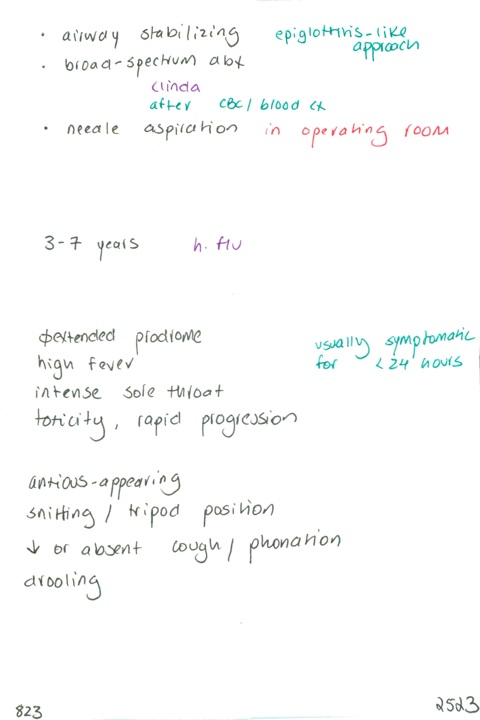 • airway stabilizing epiglottitis-like approach
• broad-spectrum abx
clinda
after CBC / blood cx
• needle aspiration in operating room
3-7 years h. flu
∅ extended prodrome
high fever
intense sore throat
toxicity, rapid progression
usually symptomatic
for < 24 hours
anxious-appearing
sniffing / tripod position
↓ or absent cough / phonation
drooling
823
2523